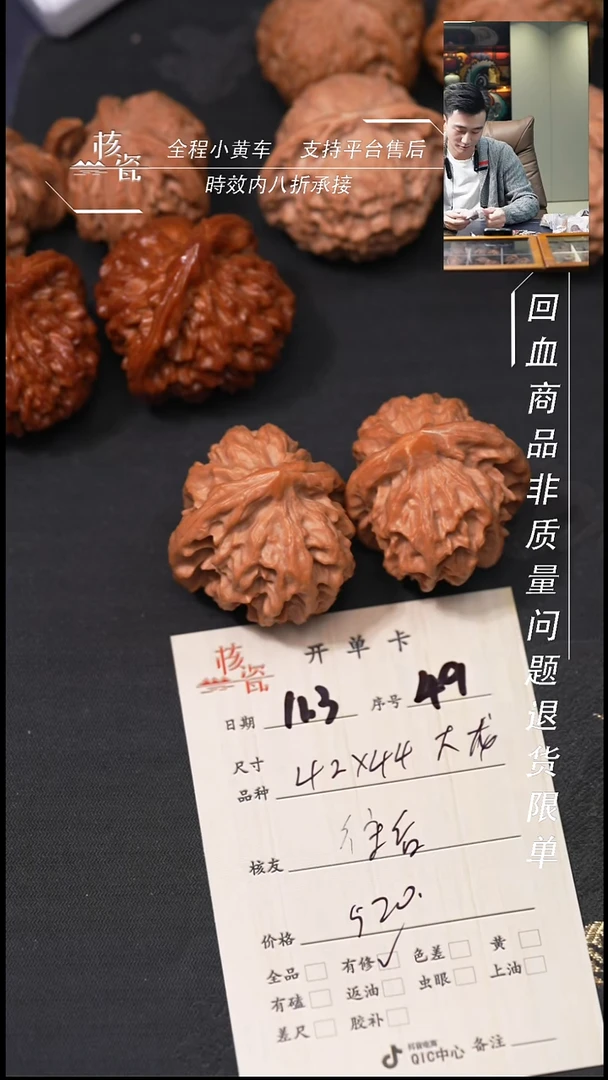 核瓷
全程小黄车 支持平台售后
時效内八折承接
回血商品非质量问题退货限单
核瓷
开单卡
日期 11.3 序号 49
尺寸
品种 42×44 大龙
核友
价格 520.
全品 有修 ✓ 色差 黄
有磕 返油 虫眼 上油
差尺 胶补
抖音电商
QIC中心 备注